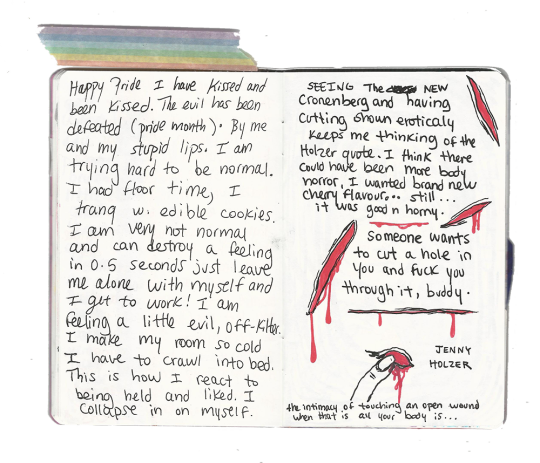 Happy Pride I have kissed and
been kissed. The evil has been
defeated (pride month). By me
and my stupid lips. I am
trying hard to be normal.
I had floor time, I
trang w. edible cookies.
I am very not normal
and can destroy a feeling
in 0.5 seconds just leave
me alone with myself and
I get to work! I am
feeling a little evil, off-kilter.
I make my room so cold
I have to crawl into bed.
This is how I react to
being held and liked. I
collapse in on myself.
SEEING The NEW
Cronenberg and having
cutting shown eroticaly
keeps me thinking of the
Holzer quote. I think there
could have been more body
horror, I wanted brand new
chery flavour... still...
it was good n horny.
Someone wants
to cut a hole in
you and fuck you
through it, buddy.
JENNY
HOLZER
the intimacy of touching an open wound
when that is all your body is...